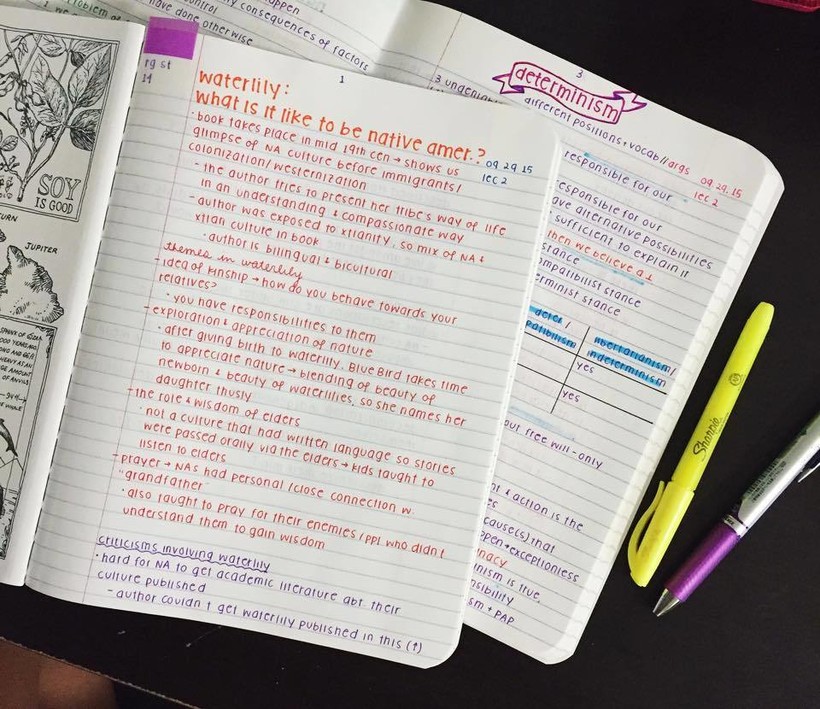 problem of
happen
control
ny consequences of factors
have done otherwise
1 we
SOY
IS GOOD
TURN
JUPITER
rg st
14
1
waterlily:
what is it like to be native amer.?
09 29 15
lec 2
· book takes place in mid 19th cen → shows us
glimpse of NA culture before immigrants/
colonization/westernization
- the author tries to present her tribe's way of life
in an understanding & compassionate way
- author was exposed to xtianity, so mix of NA &
xtian culture in book
· author is bilingual & bicultural
themes in waterlily
- idea of kinship → how do you behave towards your
relatives?
· you have responsibilities to them
- exploration & appreciation of nature
· after giving birth to waterlily, Blue Bird takes time
to appreciate nature → blending of beauty of
newborn & beauty of waterlilies, so she names her
daughter thusly
- the role & wisdom of elders
· not a culture that had written language so stories
were passed orally via the elders → kids taught to
listen to elders
- prayer → NAs had personal/close connection w.
"grandfather"
· also taught to pray for their enemies/ppl who didn't
understand them to gain wisdom
criticisms involving waterlily
· hard for NA to get academic literature abt. their
culture published
- author couldn't get waterlily published in this (↑)
3
3 undeniable
determinism
different positions, vocab//args
09 29 15
lec 2
responsible for our
esponsible for our
ave alternative possibilities
sufficient to explain it
then we believe a +
stance
ompatibilist stance
erminist stance
deter/
patibilism
libertarianism/
indeterminism
yes
yes
our free will-only
nt & action is the
es
cause(s) that
ppen → exceptionless
nacy
inism is true,
nsibility
sm + PAP
Sharpie